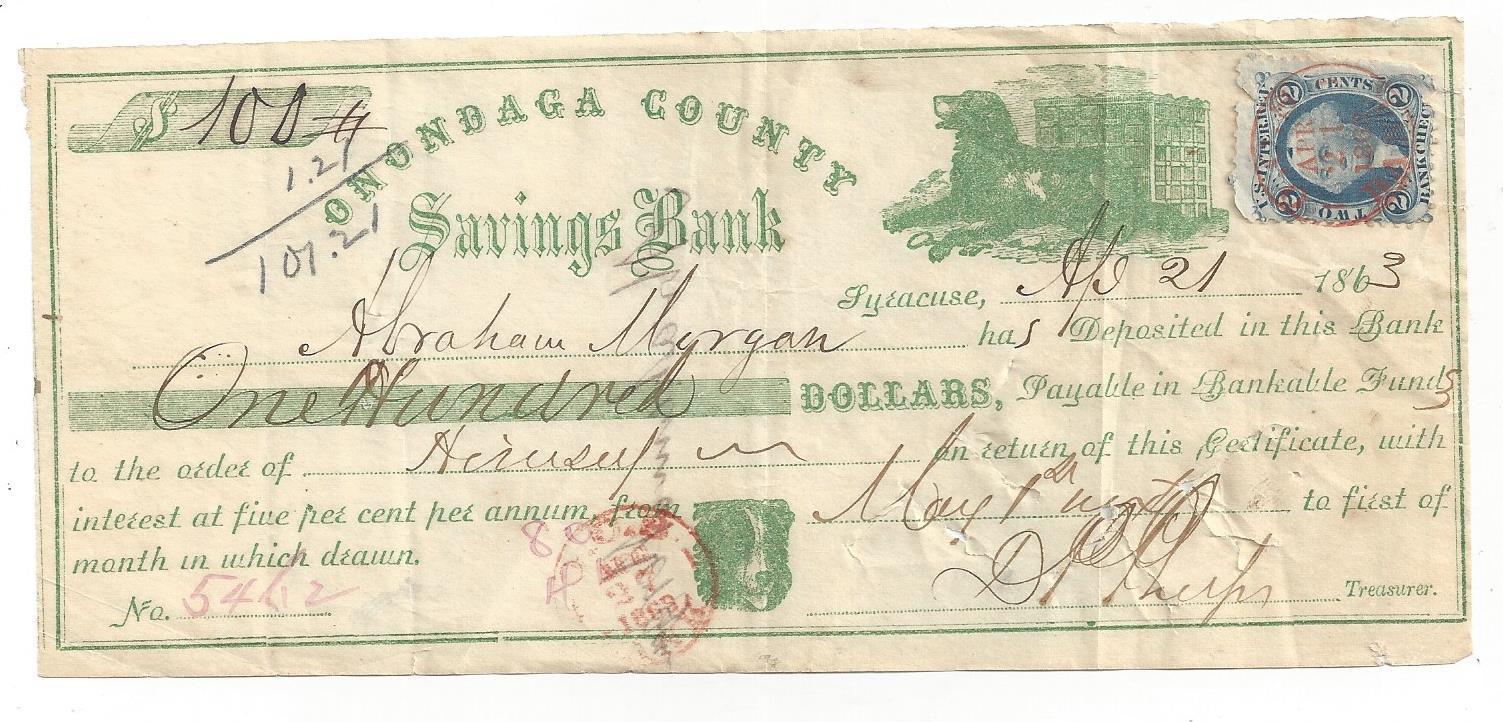 $ 100
1.21
101.21
ONONDAGA COUNTY
Savings Bank
U.S. INTER. REV.
2 CENTS 2
BANK CHECK
2 TWO 2
APR 21
Syracuse, Ap 21 1863
Abraham Morgan has Deposited in this Bank
One Hundred DOLLARS, Payable in Bankable Funds
to the order of Himself on return of this Certificate, with
interest at five per cent per annum, from May 1st to first of
month in which drawn.
No. 5462
Phelps Treasurer.